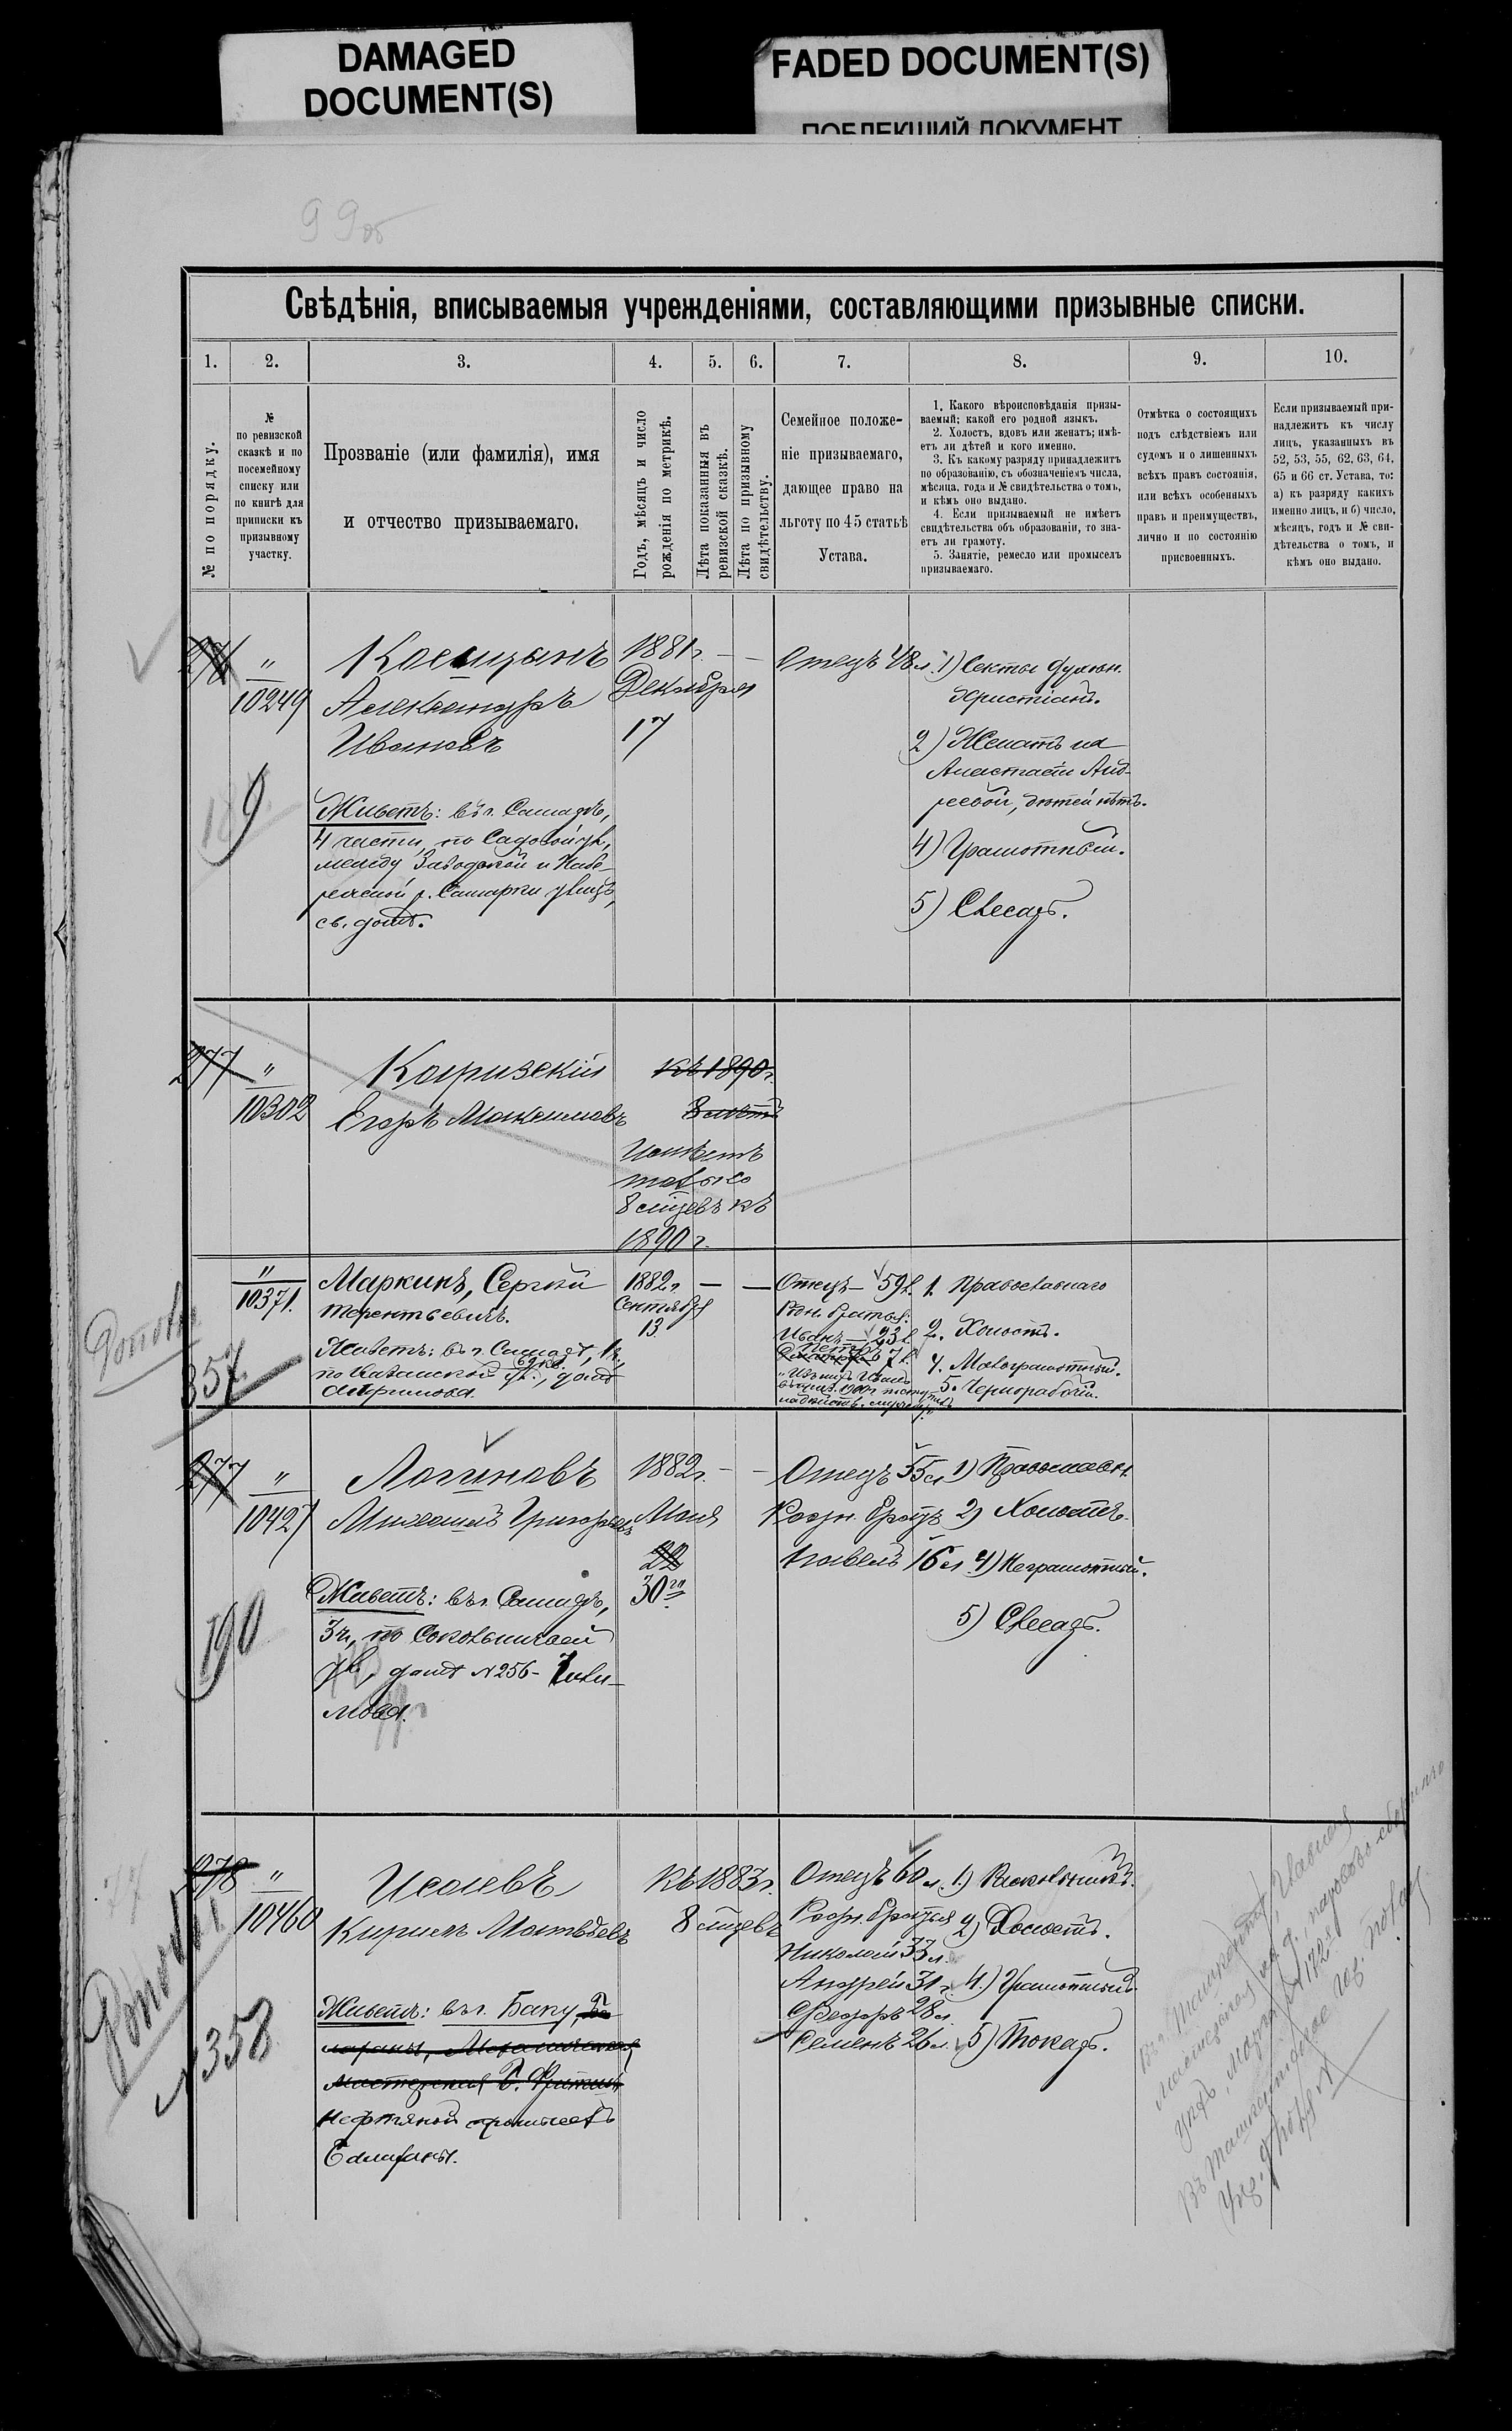 DAMAGED
DOCUMENT(S)
FADED DOCUMENT(S)
ПОБЛЕКШИЙ ДОКУМЕНТ
99об
Свѣдѣнія, вписываемыя учрежденіями, составляющими призывные списки.
1.
2.
3.
4.
5.
6.
7.
8.
9.
10.
№ по порядку.
№
по ревизской
сказкѣ и по
посемейному
списку или
по книгѣ для
приписки къ
призывному
участку.
Прозваніе (или фамилія), имя
и отчество призываемаго.
Годъ, мѣсяцъ и число
рожденія по метрикѣ.
Лѣта показанныя въ
ревизской сказкѣ.
Лѣта по призывному
свидѣтельству.
Семейное положе-
ніе призываемаго,
дающее право на
льготу по 45 статьѣ
Устава.
1. Какого вѣроисповѣданія призы-
ваемый; какой его родной языкъ.
2. Холостъ, вдовъ или женатъ; имѣ-
етъ ли дѣтей и кого именно.
3. Къ какому разряду принадлежитъ
по образованію, съ обозначеніемъ числа,
мѣсяца, года и № свидѣтельства о томъ,
и кѣмъ оно выдано.
4. Если призываемый не имѣетъ
свидѣтельства объ образованіи, то зна-
етъ ли грамоту.
5. Занятіе, ремесло или промыселъ
призываемаго.
Отмѣтка о состоящихъ
подъ слѣдствіемъ или
судомъ и о лишенныхъ
всѣхъ правъ состоянія,
или всѣхъ особенныхъ
правъ и преимуществъ,
лично и по состоянію
присвоенныхъ.
Если призываемый при-
надлежитъ къ числу
лицъ, указанныхъ въ
52, 53, 55, 62, 63, 64,
65 и 66 ст. Устава, то:
а) къ разряду какихъ
именно лицъ, и б) число,
мѣсяцъ, годъ и № сви-
дѣтельства о томъ, и
кѣмъ оно выдано.
276
"
10249
Александръ
Ивановъ
1881 г. — —
Декабря
17
Отецъ 48 л.
1) Секты духовн.
христіанъ.
2) Женатъ на
Анастасіи Анд-
реевой, дѣтей нѣтъ.
4) Грамотный.
5) Слесарь.
Живетъ: въ г. Самарѣ,
4 части, по Садовой ул.,
между Заводской и Набе-
режной р. Самарки улицъ,
св. домъ.
277
"
10302
Егоръ Максимовъ
къ 1890 г.
8 лѣтъ
Имѣетъ
только
8 мѣсяцевъ къ
1890 г.
"
10371.
357
Маркинъ, Сергѣй
Терентьевичъ.
Живетъ: въ г. Самарѣ, 1 ч.,
по Казанской ул., домъ
1882 г. — —
Сентября
13
Отецъ — 59 л.
Родн. братья:
Иванъ — 23 л.
Петръ 7 л.
1. Православнаго
2. Холостъ.
4. Малограмотный.
5. Чернорабочій.
277
"
10427
190
Логиновъ
Михаилъ Григорьевъ
1882 г. — —
Мая
22
30го
Отецъ 55 л.
Родн. братъ
Павелъ 16 л.
1) Православн.
2) Холостъ.
4) Неграмотный.
5) Слесарь.
Живетъ: въ г. Самарѣ,
3 ч., по Сокольничьей
ул., домъ № 256 -
278
"
10460
358
Исаевъ
Кириллъ Матвѣевъ
Къ 1883 г.
8 мѣсяцевъ
Отецъ 60 л.
Родн. братья
Николай 33 л.
Андрей 31 г.
Федоръ 28 л.
Семенъ 26 л.
1) Раскольникъ.
2) Холостъ.
4) Грамотный.
5) Токарь.
Живетъ: въ г. Баку,
Нефтяной промыселъ